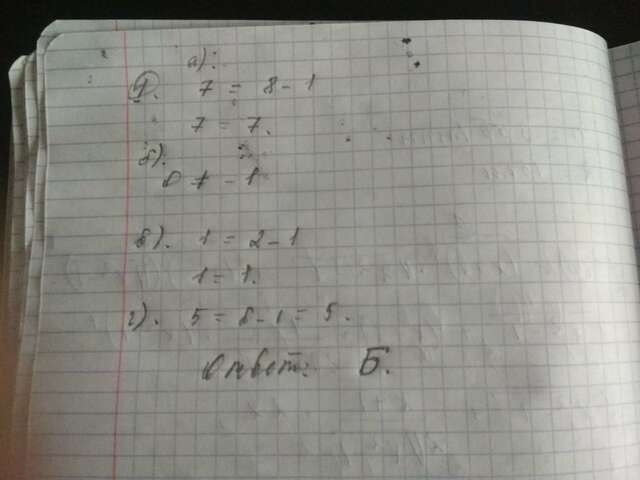 а):
1. 7 = 8 - 1
7 = 7.
б).
0 ≠ - 1
в). 1 = 2 - 1
1 = 1.
г). 5 = 6 - 1 = 5.
Ответ: Б.